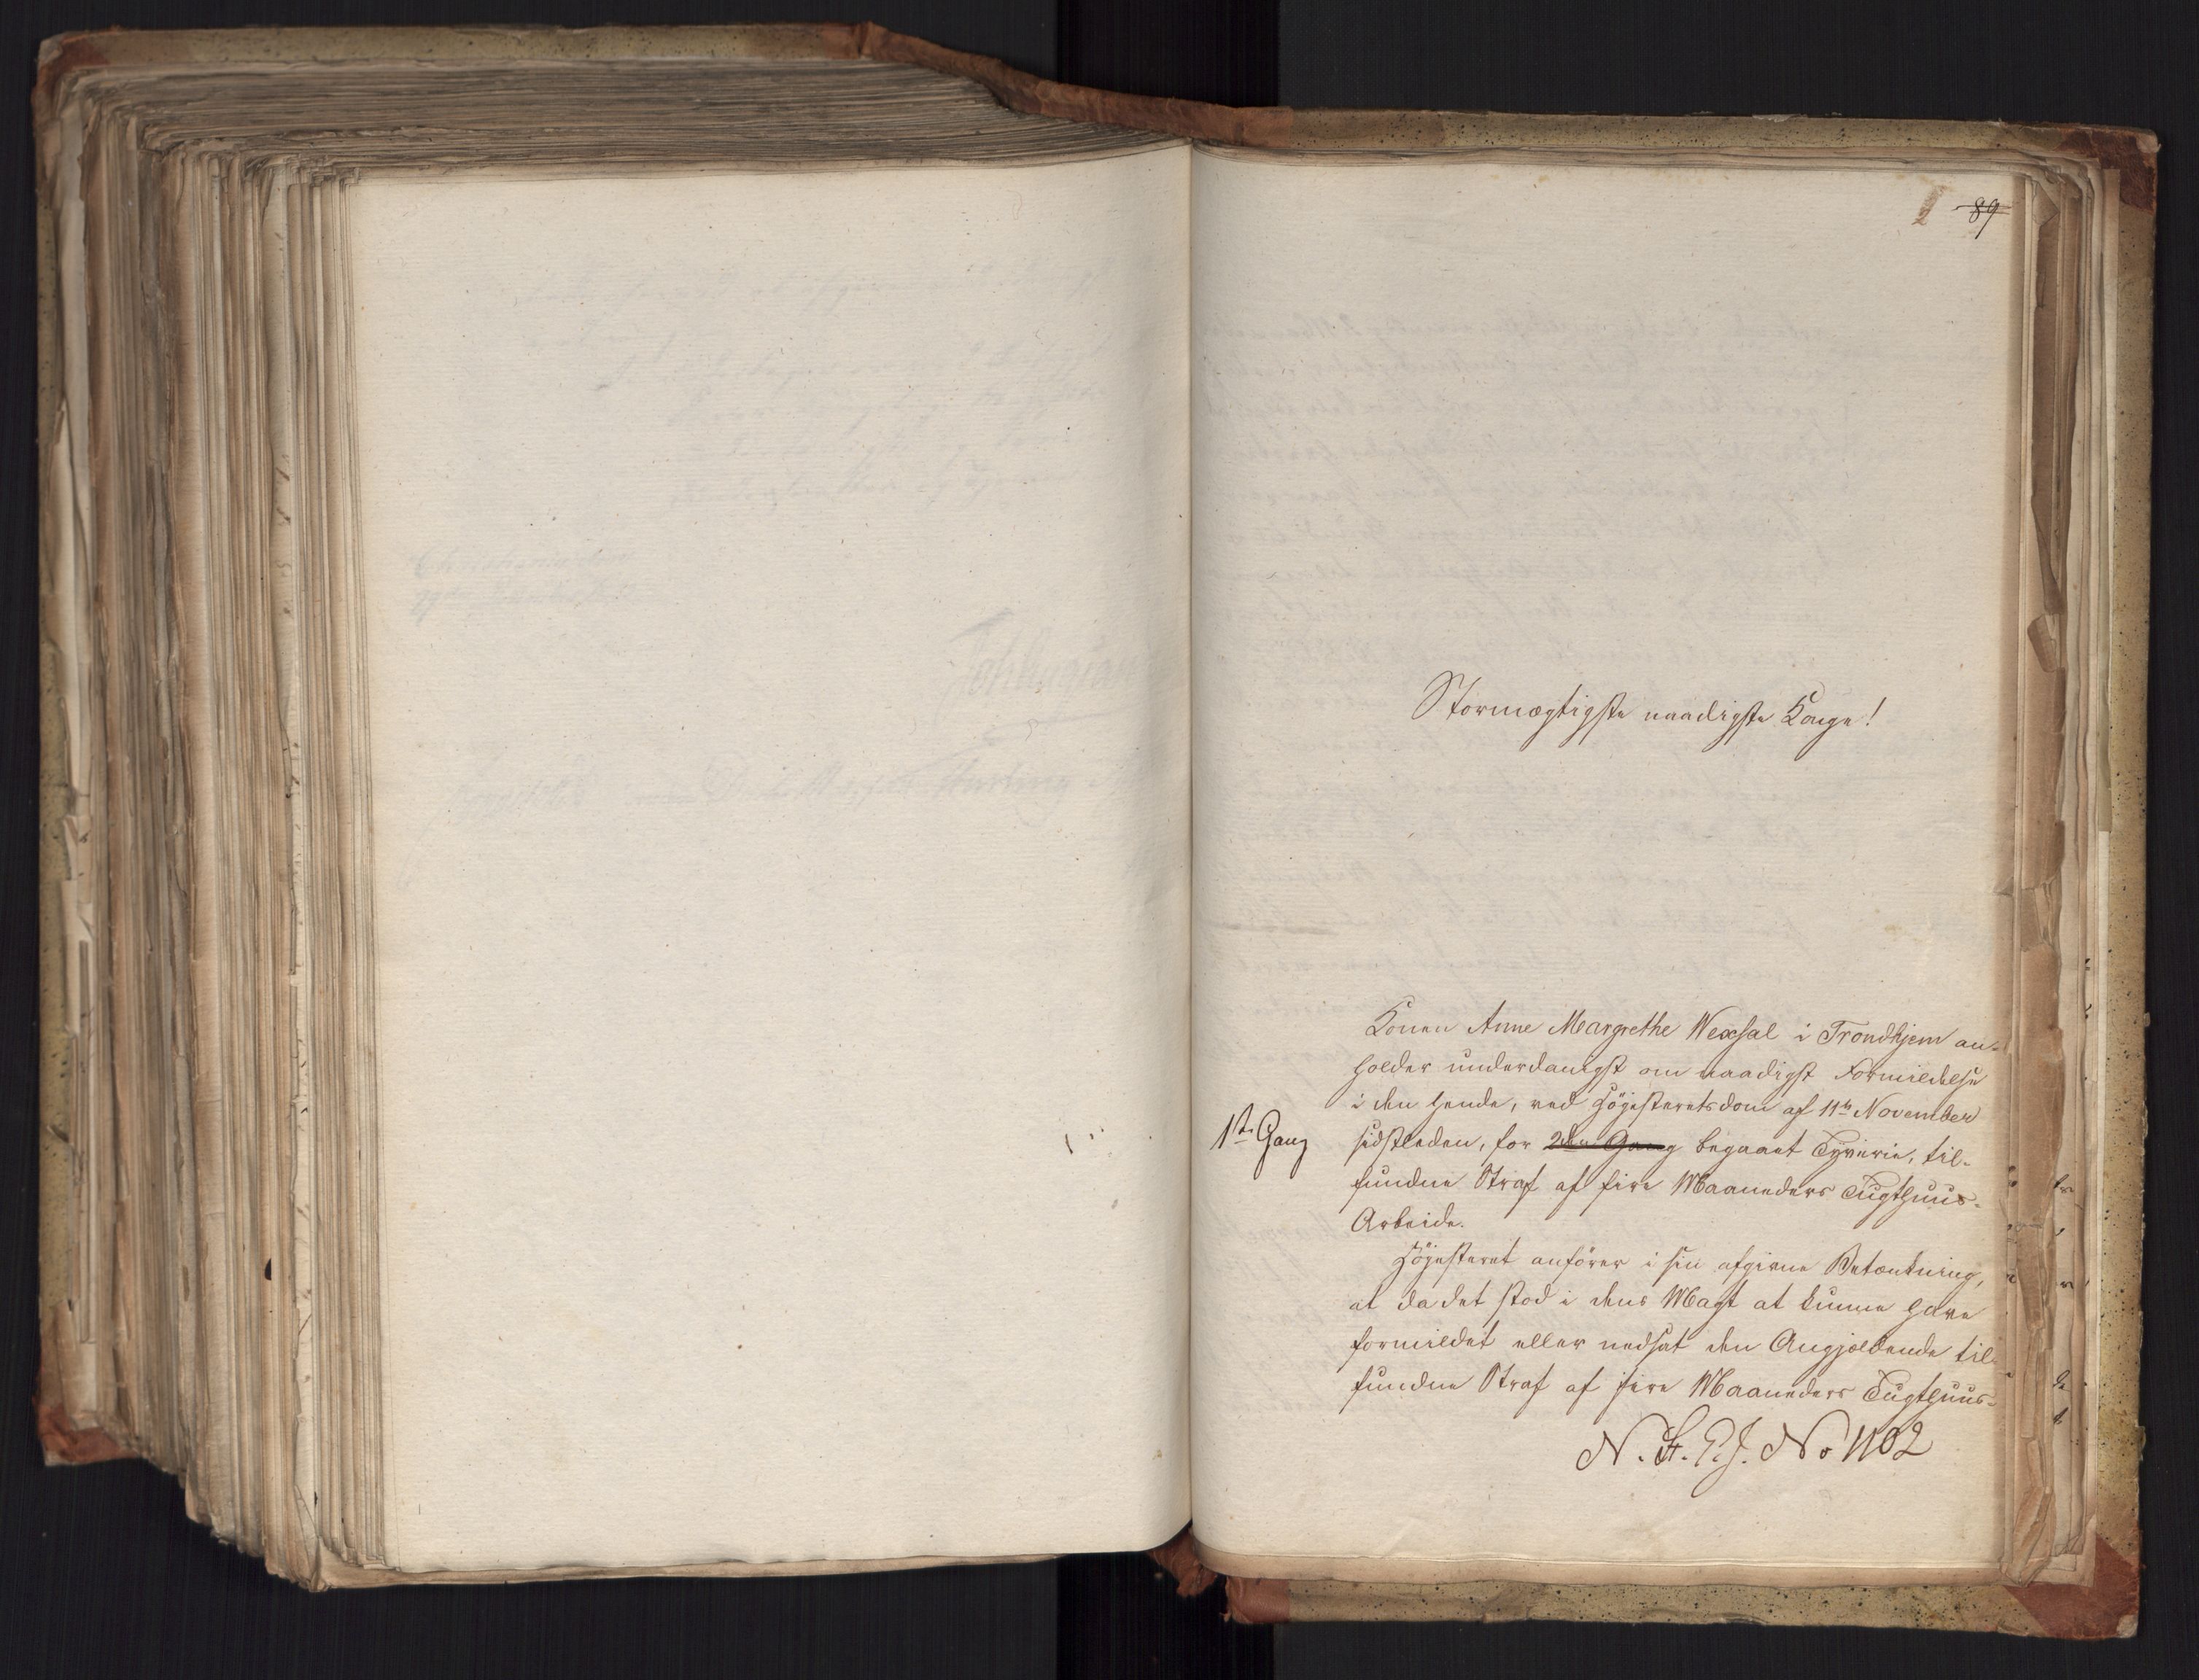 89
Stormægtigste naadigste Konge!
Konen Anne Margrethe Wexsal i Trondhjem an-
holder underdanigst om naadigst Formildelse
i den hende, ved Høiesteretsdom af 11te November
1ste Gang
sidstleden, for 2den Gang begaaet Tyverie, til-
fundne Straf af fire Maaneders Tugthuus-
Arbeide.
Højesteret anfører i sin afgivne Betænkning,
at da det stod i dens Magt at kunne have
formildet eller nedsat den Angjældende til-
fundne Straf af fire Maaneders Tugthuus-
N. St. E. J. No 1102